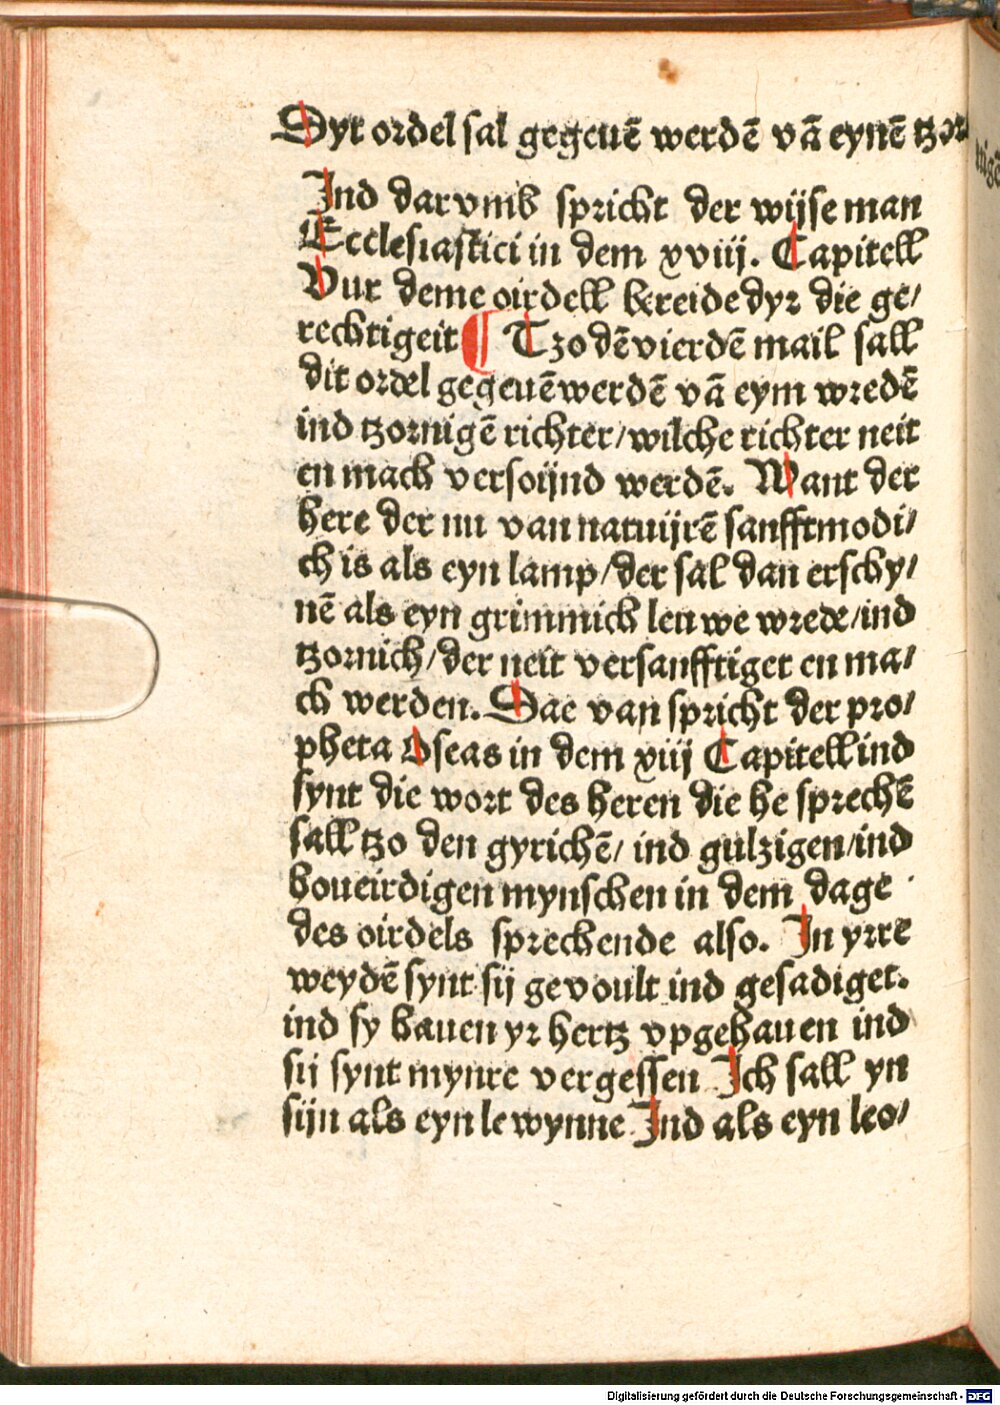 Dyt ordel sal gegeuē werdē vā eynē tzor
nigē
Ind dar vmb spricht der wijse man
Ecclesiastici in dem xviij. Capitell
Vur deme oirdell bereide dyr die ge/
rechtigeit ¶ Tzo dē vierdē mail sall
dit ordel gegeuē werdē vā eym wredē
ind tzornigē richter/wilche richter neit
en mach versoijnd werdē. Want der
here der nu van natuijrē sanfftmodi/
ch is als eyn lamp/der sal dan erschy/
nē als eyn grimmich leuwe wrede/ind
tzornich/der neit versanfftiget en ma/
ch werden. Dae van spricht der pro/
pheta Oseas in dem xiij Capitell ind
synt die wort des heren die he sprechē
sall tzo den gyrichē/ ind gulzigen/ind
houeirdigen mynschen in dem dage
des oirdels sprechende also. In yrre
weydē synt sij gevoult ind gesadiget.
ind sy hauen yr hertz vpgehauen ind
sij synt mynre vergessen Ich sall yn
sijn als eyn lewynne Ind als eyn leo/
Digitalisierung gefördert durch die Deutsche Forschungsgemeinschaft - DFG